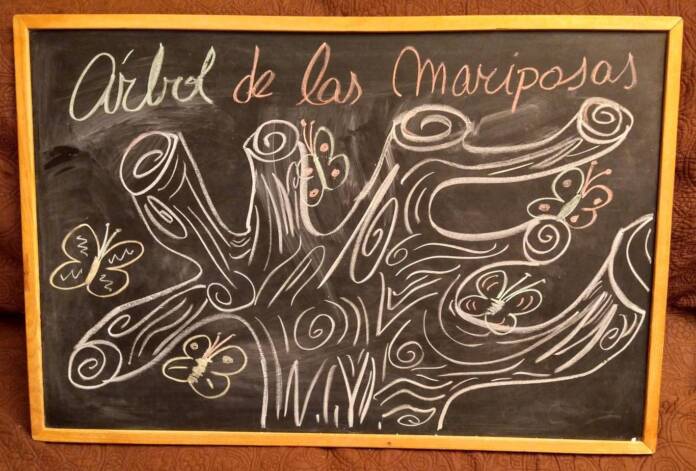 Árbol de las Mariposas
N.Y.